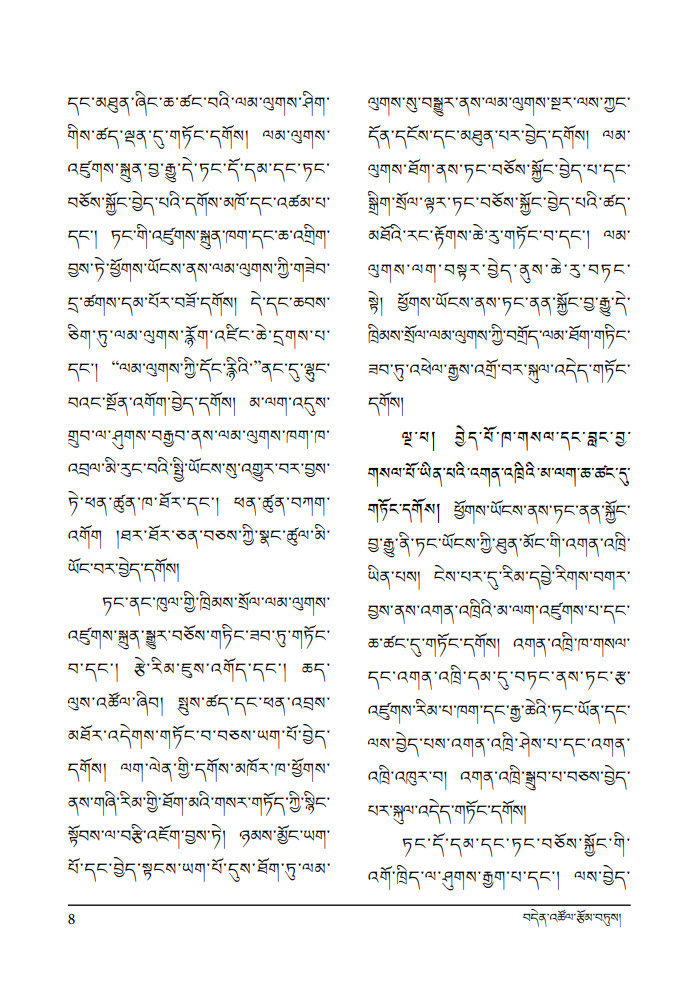 དང་མཐུན་ཞིང་ཆ་ཚང་བའི་ལམ་ལུགས་ཤིག་
གིས་ཚད་ལྡན་དུ་གཏོང་དགོས། ལམ་ལུགས་
འཛུགས་སྐྲུན་བྱ་རྒྱུ་དེ་ཏང་དོ་དམ་དང་ཏང་
བཅོས་སྐྱོང་བྱེད་པའི་དགོས་མཁོ་དང་འཚམ་པ་
དང༌། ཏང་གི་འཛུགས་སྐྲུན་ཁག་དང་ཆ་འགྲིག་
བྱས་ཏེ་ཕྱོགས་ཡོངས་ནས་ལམ་ལུགས་ཀྱི་གཟེབ་
དྲ་ཚགས་དམ་པོར་བཟོ་དགོས། དེ་དང་ཆབས་
ཅིག་ཏུ་ལམ་ལུགས་རྙོག་འཛིང་ཆེ་དྲགས་པ་
དང༌། “ལམ་ལུགས་ཀྱི་དོང་རྙིའི་”ནང་དུ་ལྷུང་
བའང་སྔོན་འགོག་བྱེད་དགོས། མ་ལག་འདུས་
གྲུབ་ལ་ཤུགས་བརྒྱབ་ནས་ལམ་ལུགས་ཁག་ཁ་
འབྲལ་མི་རུང་བའི་སྤྱི་ཡོངས་སུ་འགྱུར་བར་བྱས་
ཏེ་ཕན་ཚུན་ཁ་ཐོར་དང༌། ཕན་ཚུན་བཀག་
འགོག །ཐར་ཐོར་ཅན་བཅས་ཀྱི་སྣང་ཚུལ་མི་
ཡོང་བར་བྱེད་དགོས།
ཏང་ནང་ཁུལ་གྱི་ཁྲིམས་སྲོལ་ལམ་ལུགས་
འཛུགས་སྐྲུན་སྒྱུར་བཅོས་གཏིང་ཟབ་ཏུ་གཏོང་
བ་དང༌། རྩེ་རིམ་ཇུས་འགོད་དང༌། ཆད་
ལུས་འཚོལ་ཞིབ། སྤུས་ཚད་དང་ཕན་འབྲས་
མཐོར་འདེགས་གཏོང་བ་བཅས་ཡག་པོ་བྱེད་
དགོས། ལག་ལེན་གྱི་དགོས་མཁོར་ཁ་ཕྱོགས་
ནས་གཞི་རིམ་གྱི་ཐོག་མའི་གསར་གཏོད་ཀྱི་སྙིང་
སྟོབས་ལ་བརྩི་འཇོག་བྱས་ཏེ། ཉམས་མྱོང་ཡག་
པོ་དང་བྱེད་སྟངས་ཡག་པོ་དུས་ཐོག་ཏུ་ལམ་
ལུགས་སུ་བསྒྱུར་ནས་ལམ་ལུགས་སྔར་ལས་ཀྱང་
དོན་དངོས་དང་མཐུན་པར་བྱེད་དགོས། ལམ་
ལུགས་ཐོག་ནས་ཏང་བཅོས་སྐྱོང་བྱེད་པ་དང་
སྒྲིག་སྲོལ་ལྟར་ཏང་བཅོས་སྐྱོང་བྱེད་པའི་ཚད་
མཐོའི་རང་རྟོགས་ཆེ་རུ་གཏོང་བ་དང༌། ལམ་
ལུགས་ལག་བསྟར་བྱེད་ནུས་ཆེ་རུ་བཏང་
སྟེ། ཕྱོགས་ཡོངས་ནས་ཏང་ནན་སྐྱོང་བྱ་རྒྱུ་དེ་
ཁྲིམས་སྲོལ་ལམ་ལུགས་ཀྱི་བགྲོད་ལམ་ཐོག་གཏིང་
ཟབ་ཏུ་འཕེལ་རྒྱས་འགྲོ་བར་སྐུལ་འདེད་གཏོང་
དགོས།
ལྔ་པ། བྱེད་པོ་ཁ་གསལ་དང་བླང་བྱ་
གསལ་པོ་ཡིན་པའི་འགན་འཁྲིའི་མ་ལག་ཆ་ཚང་དུ་
གཏོང་དགོས། ཕྱོགས་ཡོངས་ནས་ཏང་ནན་སྐྱོང་
བྱ་རྒྱུ་ནི་ཏང་ཡོངས་ཀྱི་ཐུན་མོང་གི་འགན་འཁྲི་
ཡིན་པས། ངེས་པར་དུ་རིམ་དབྱེ་རིགས་བགར་
བྱས་ནས་འགན་འཁྲིའི་མ་ལག་འཛུགས་པ་དང་
ཆ་ཚང་དུ་གཏོང་དགོས། འགན་འཁྲི་ཁ་གསལ་
དང་འགན་འཁྲི་དམ་དུ་བཏང་ནས་ཏང་རྩ་
འཛུགས་རིམ་པ་ཁག་དང་རྒྱ་ཆེའི་ཏང་ཡོན་དང་
ལས་བྱེད་པས་འགན་འཁྲི་ཤེས་པ་དང་འགན་
འཁྲི་འཁུར་བ། འགན་འཁྲི་སྒྲུབ་པ་བཅས་བྱེད་
པར་སྐུལ་འདེད་གཏོང་དགོས།
ཏང་དོ་དམ་དང་ཏང་བཅོས་སྐྱོང་གི་
འགོ་ཁྲིད་ལ་ཤུགས་རྒྱག་པ་དང༌། ལས་བྱེད་
8
བདེན་འཚོལ་རྩོམ་བཏུས།